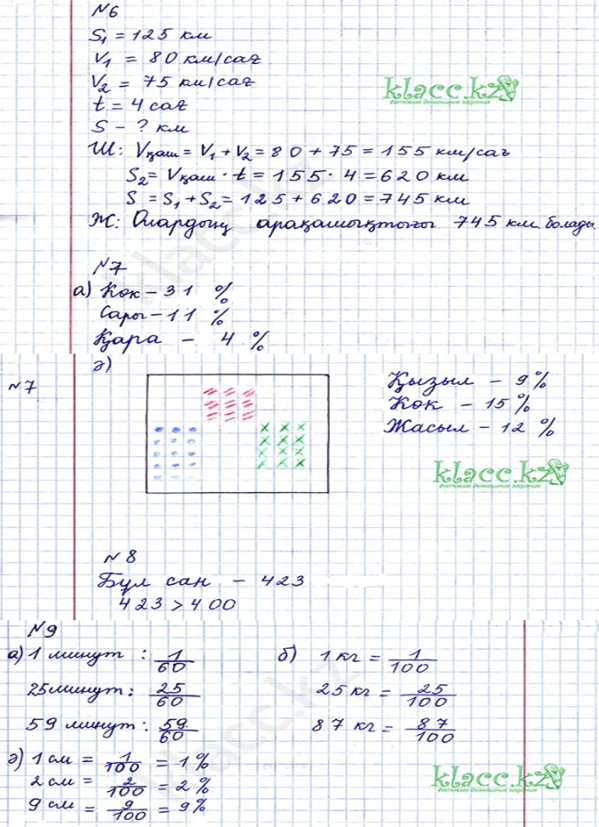 №6
S₁ = 125 км
V₁ = 80 км/сағ
klacc.kz
готовые домашние задания
V₂ = 75 км/сағ
t = 4 сағ
S - ? км
Ш: Vқаш = V₁ + V₂ = 80 + 75 = 155 км/сағ
S₂ = Vқаш · t = 155 · 4 = 620 км
S = S₁ + S₂ = 125 + 620 = 745 км
Ж: Олардың арақашықтығы 745 км болады.
№7
а) Көк – 31 %
Сары – 11 %
Қара – 4 %
№7
ә)
Қызыл – 9 %
Көк – 15 %
Жасыл – 12 %
klacc.kz
готовые домашние задания
№8
Бұл сан – 423
423 > 400
№9
а) 1 минут : 1/60
25 минут : 25/60
59 минут : 59/60
б) 1 кг = 1/100
25 кг = 25/100
87 кг = 87/100
ә) 1 см = 1/100 = 1 %
2 см = 2/100 = 2 %
9 см = 9/100 = 9 %
klacc.kz
готовые домашние задания